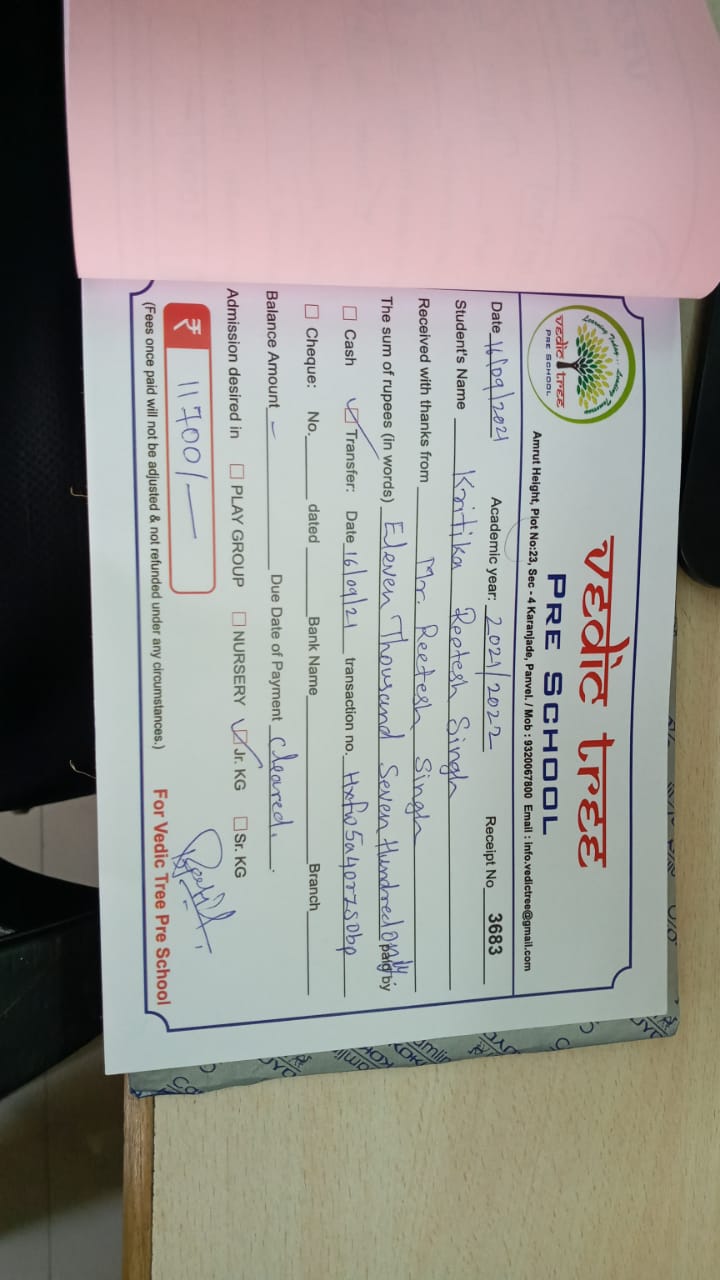 Learning Today... Leading Tomorrow
vedic tree
PRE SCHOOL
vedic tree
PRE SCHOOL
Amrut Height, Plot No:23, Sec - 4 Karanjade, Panvel. / Mob : 9320067800 Email : info.vedictree@gmail.com
Date 16/09/2021 Academic year: 2021/2022 Receipt No 3683
Student's Name Kritika Reetesh Singh
Received with thanks from Mr. Reetesh Singh
The sum of rupees (in words) Eleven Thousand Seven Hundred only. paid by
Cash Transfer: Date 16/09/21 transaction no.
Cheque: No. dated Bank Name Branch
Balance Amount - Due Date of Payment Cleared.
Admission desired in PLAY GROUP NURSERY Jr. KG Sr. KG
₹ 11700/-
(Fees once paid will not be adjusted & not refunded under any circumstances.) For Vedic Tree Pre School